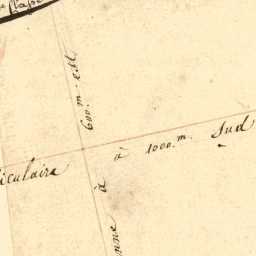 600.m Est
iculaire
à 1000.m. Sud
nne à